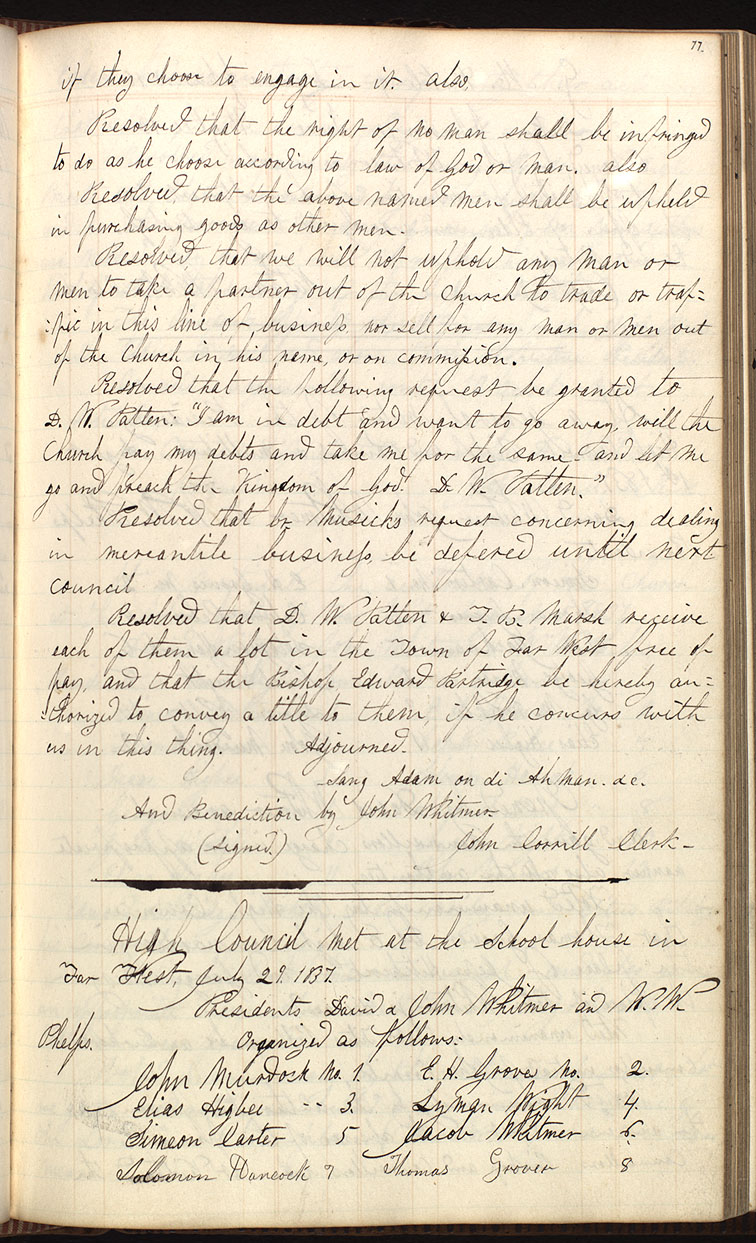 77.
if they choose to engage in it. also,
Resolved that the right of no man shall be infringed
to do as he choose according to law of God or man. also
Resolved, that the above named men shall be upheld
in purchasing goods as other men.
Resolved, that we will not uphold any man or
men to take a partner out of the Church to trade or traf=
:fic in this line of business, nor sell for any man or men out
of the Church in his name, or on commission.
Resolved that the following request be granted to
D. W. Patten: "I am in debt and want to go away, will the
Church pay my debts and take me for the same and let me
go and preach the Kingdom of God. D. W. Patten."
Resolved that br Musicks request concerning dealing
in mercantile business, be defered until next
council
Resolved that D. W. Patten & T. B. Marsh receive
each of them a lot in the Town of Far West free of
pay, and that the Bishop Edward Partridge be hereby au=
:thorized to convey a title to them, if he concurs with
us in this thing. Adjourned.
Sang Adam on di Ahman. &c.
And Benediction by John Whitmer
(signed.) John Corrill Clerk-
High Council met at the School house in
Far West, July 29. 1837.
Presidents David & John Whitmer and W. W.
Phelps. Organized as follows:-
John Murdock No. 1. E. H. Grove No. 2.
Elias Higbee -- 3. Lyman Wight 4.
Simeon Carter 5 Jacob Whitmer 6.
Solomon Hancock 7 Thomas Grover 8